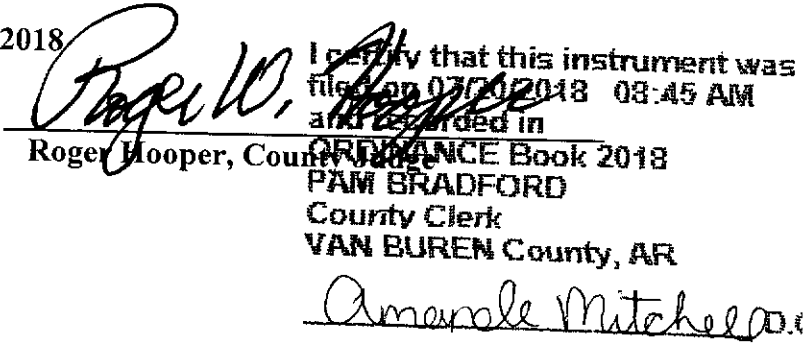 2018
Roger W. Hooper
Roger Hooper, County Judge
I certify that this instrument was
filed on 07/20/2018 08:45 AM
and recorded in
ORDINANCE Book 2018
PAM BRADFORD
County Clerk
VAN BUREN County, AR
Mitchell D.C